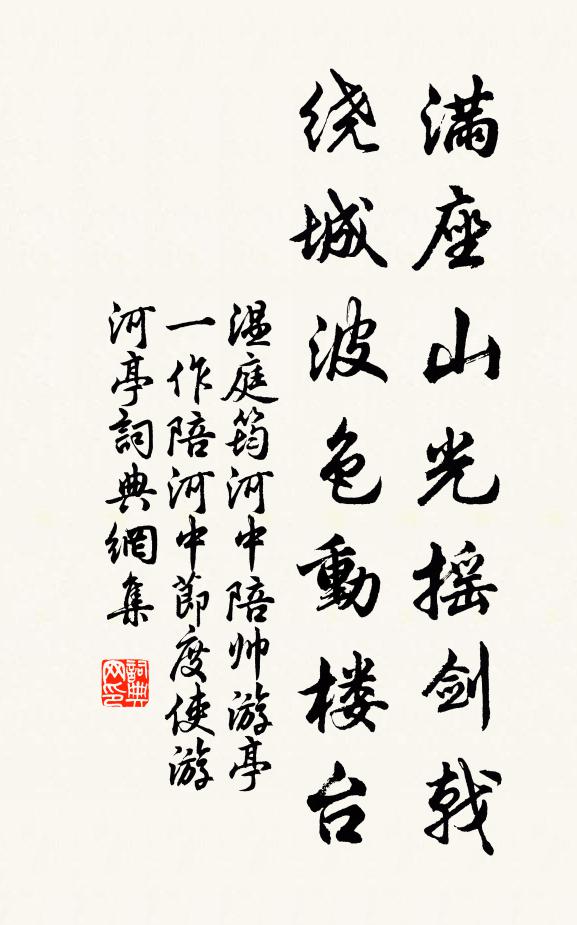 满座山光摇剑戟
绕城波色動楼台
温庭筠河中陪帅游亭
一作陪河中節度使游
河亭詞典網集
詞典
网印